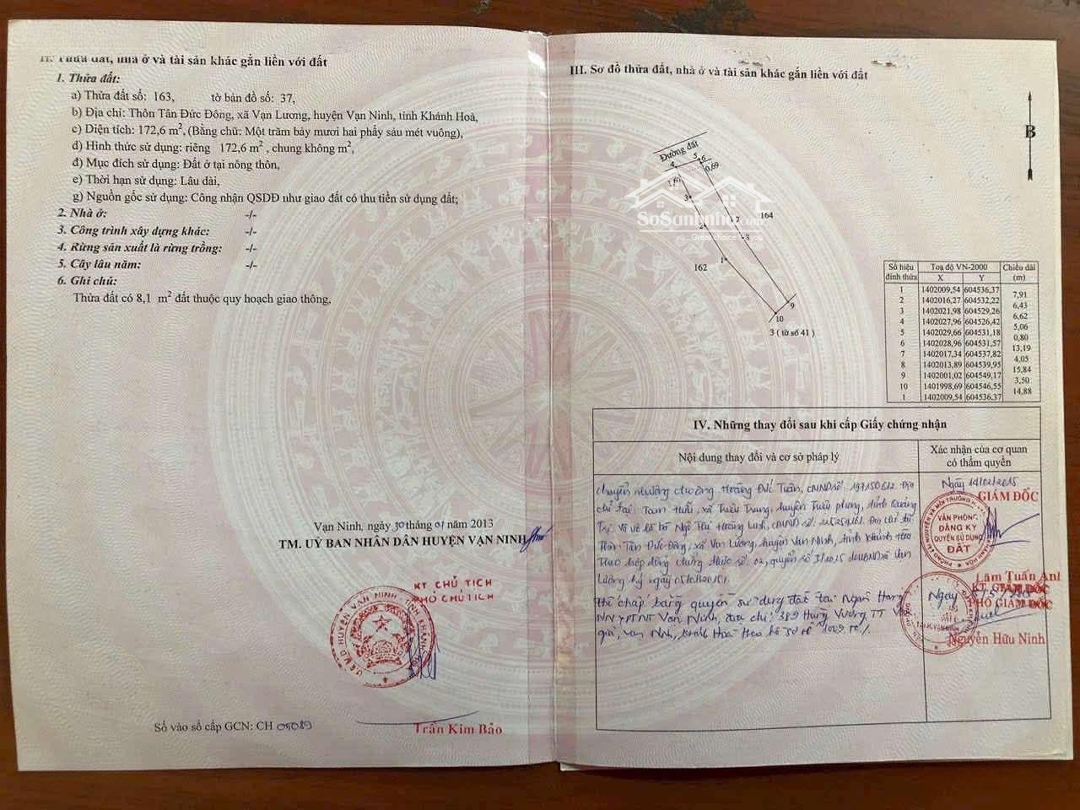 II. Thửa đất, nhà ở và tài sản khác gắn liền với đất
1. Thửa đất:
a) Thửa đất số: 163, tờ bản đồ số: 37,
b) Địa chỉ: Thôn Tân Đức Đông, xã Vạn Lương, huyện Vạn Ninh, tỉnh Khánh Hoà,
c) Diện tích: 172,6 m², (Bằng chữ: Một trăm bảy mươi hai phẩy sáu mét vuông),
d) Hình thức sử dụng: riêng 172,6 m² , chung không m²,
đ) Mục đích sử dụng: Đất ở tại nông thôn,
e) Thời hạn sử dụng: Lâu dài,
g) Nguồn gốc sử dụng: Công nhận QSDĐ như giao đất có thu tiền sử dụng đất;
2. Nhà ở: -/-
3. Công trình xây dựng khác: -/-
4. Rừng sản xuất là rừng trồng: -/-
5. Cây lâu năm: -/-
6. Ghi chú:
Thửa đất có 8,1 m² đất thuộc quy hoạch giao thông,
Vạn Ninh, ngày 30 tháng 01 năm 2013
TM. UỶ BAN NHÂN DÂN HUYỆN VẠN NINH
KT CHỦ TỊCH
PHÓ CHỦ TỊCH
Trần Kim Bảo
Số vào sổ cấp GCN: CH 05089
III. Sơ đồ thửa đất, nhà ở và tài sản khác gắn liền với đất
B
Đường đất
4
5
6
0,69
3
7
164
2
8
1
162
9
10
3 ( tờ số 41 )
SoSanhnha.com
Số hiệu đỉnh thửa Toạ độ VN-2000 Chiều dài (m)
X Y
1 1402009,54 604536,37
7,91
2 1402016,27 604532,22
6,43
3 1402021,98 604529,26
6,62
4 1402027,96 604526,42
5,06
5 1402029,66 604531,18
0,80
6 1402028,96 604531,57
13,19
7 1402017,34 604537,82
4,05
8 1402013,89 604539,95
15,84
9 1402001,02 604549,17
3,50
10 1401998,69 604546,55
14,88
1 1402009,54 604536,37
IV. Những thay đổi sau khi cấp Giấy chứng nhận
Nội dung thay đổi và cơ sở pháp lý
Xác nhận của cơ quan
có thẩm quyền
Chuyển nhượng cho ông Hoàng Đức Tuấn, CMND số 197150612. Địa
chỉ tại Tam Hữu, xã Triệu Trung, huyện Triệu Phong, tỉnh Quảng
Trị và vợ là bà Ngô Thị Hoàng Linh, CMND số Địa chỉ tại
Thôn Tân Đức Đông, xã Vạn Lương, huyện Vạn Ninh, tỉnh Khánh Hòa
Theo hợp đồng chứng thực số 02, quyển số UBND xã Vạn
Lương ký ngày
Thế chấp bằng quyền sử dụng đất tại Ngân Hàng
NN PTNT Vạn Ninh địa chỉ: 389 Hùng Vương TT Vạn
Giã, Vạn Ninh, Khánh Hòa theo hồ sơ số
Ngày 2015
GIÁM ĐỐC
VĂN PHÒNG
ĐĂNG KÝ
QUYỀN SỬ DỤNG
ĐẤT
Lâm Tuấn Anh
Ngày
KT. GIÁM ĐỐC
PHÓ GIÁM ĐỐC
Nguyễn Hữu Ninh